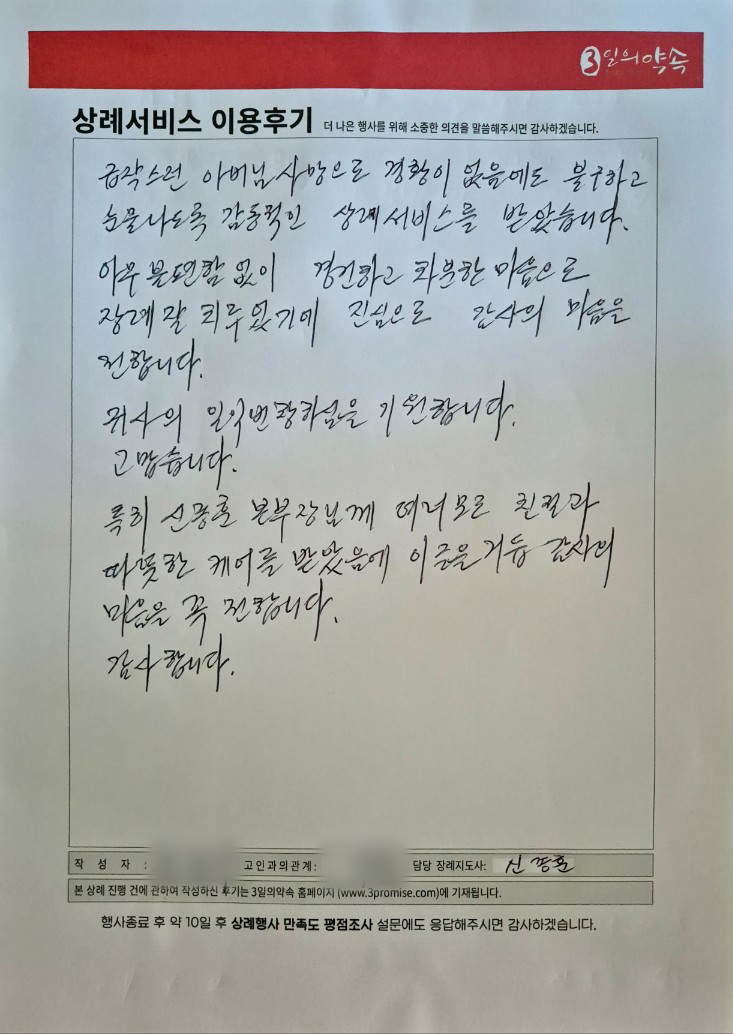 3일의약속
상례서비스 이용후기 더 나은 행사를 위해 소중한 의견을 말씀해주시면 감사하겠습니다.
급작스런 아버님 사망으로 경황이 없음에도 불구하고
눈물나도록 감동적인 상례서비스를 받았습니다.
아무 불편함 없이 경건하고 차분한 마음으로
장례 잘 치루었기에 진심으로 감사의 마음을
전합니다.
귀사의 일익번창하심을 기원합니다.
고맙습니다.
특히 신광훈 본부장님께 여러모로 친절과
따뜻한 케어를 받았음에 이글을 거듭 감사의
마음을 꼭 전합니다.
감사합니다.
작 성 자 : 고인과의관계: 담당 장례지도사: 신광훈
본 상례 진행 건에 관하여 작성하신 후기는 3일의약속 홈페이지 (www.3promise.com)에 기재됩니다.
행사종료 후 약 10일 후 상례행사 만족도 평점조사 설문에도 응답해주시면 감사하겠습니다.